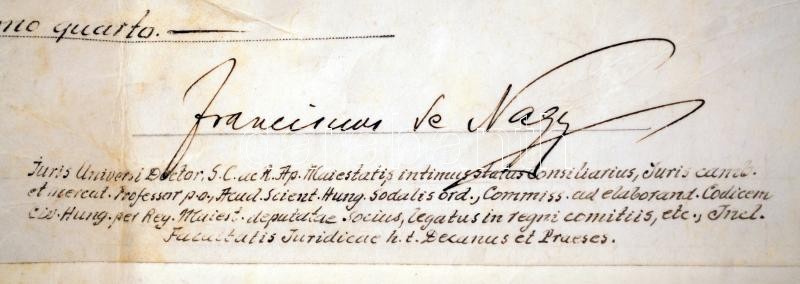 mo quarto. —
Franciscus de Nagy
Juris Universi Doctor. S. C. ac R. Ap. Maiestatis intimus status Consiliarius, Juris camb.
et mercat. Professor p.o., Acad. Scient. Hung. Sodalis ord., Commiss. ad elaborand. Codicem
Civ. Hung. per Reg. Maiest. deputatae Socius, Legatus in regni comitiis, etc., Incl.
Facultatis Juridicae h. t. Decanus et Praeses.